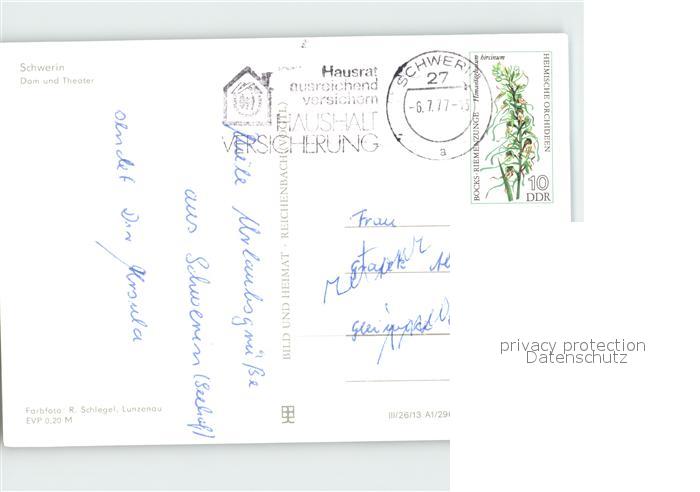 Schwerin
Dom und Theater
Hausrat
ausreichend
versichern
HAUSHALT
VERSICHERUNG
SCHWERIN
27
-6.7.77-
a
BOCKS-RIEMENZUNGE · Himantoglossum hircinum
HEIMISCHE ORCHIDEEN
10
DDR
Urlaubsgrüße
aus Schwerin (Seehof)
sendet Dir Ursula
BILD UND HEIMAT · REICHENBACH (VOGTL)
Frau
Farbfoto: R. Schlegel, Lunzenau
EVP 0,20 M
III/26/13 A1/296
privacy protection
Datenschutz